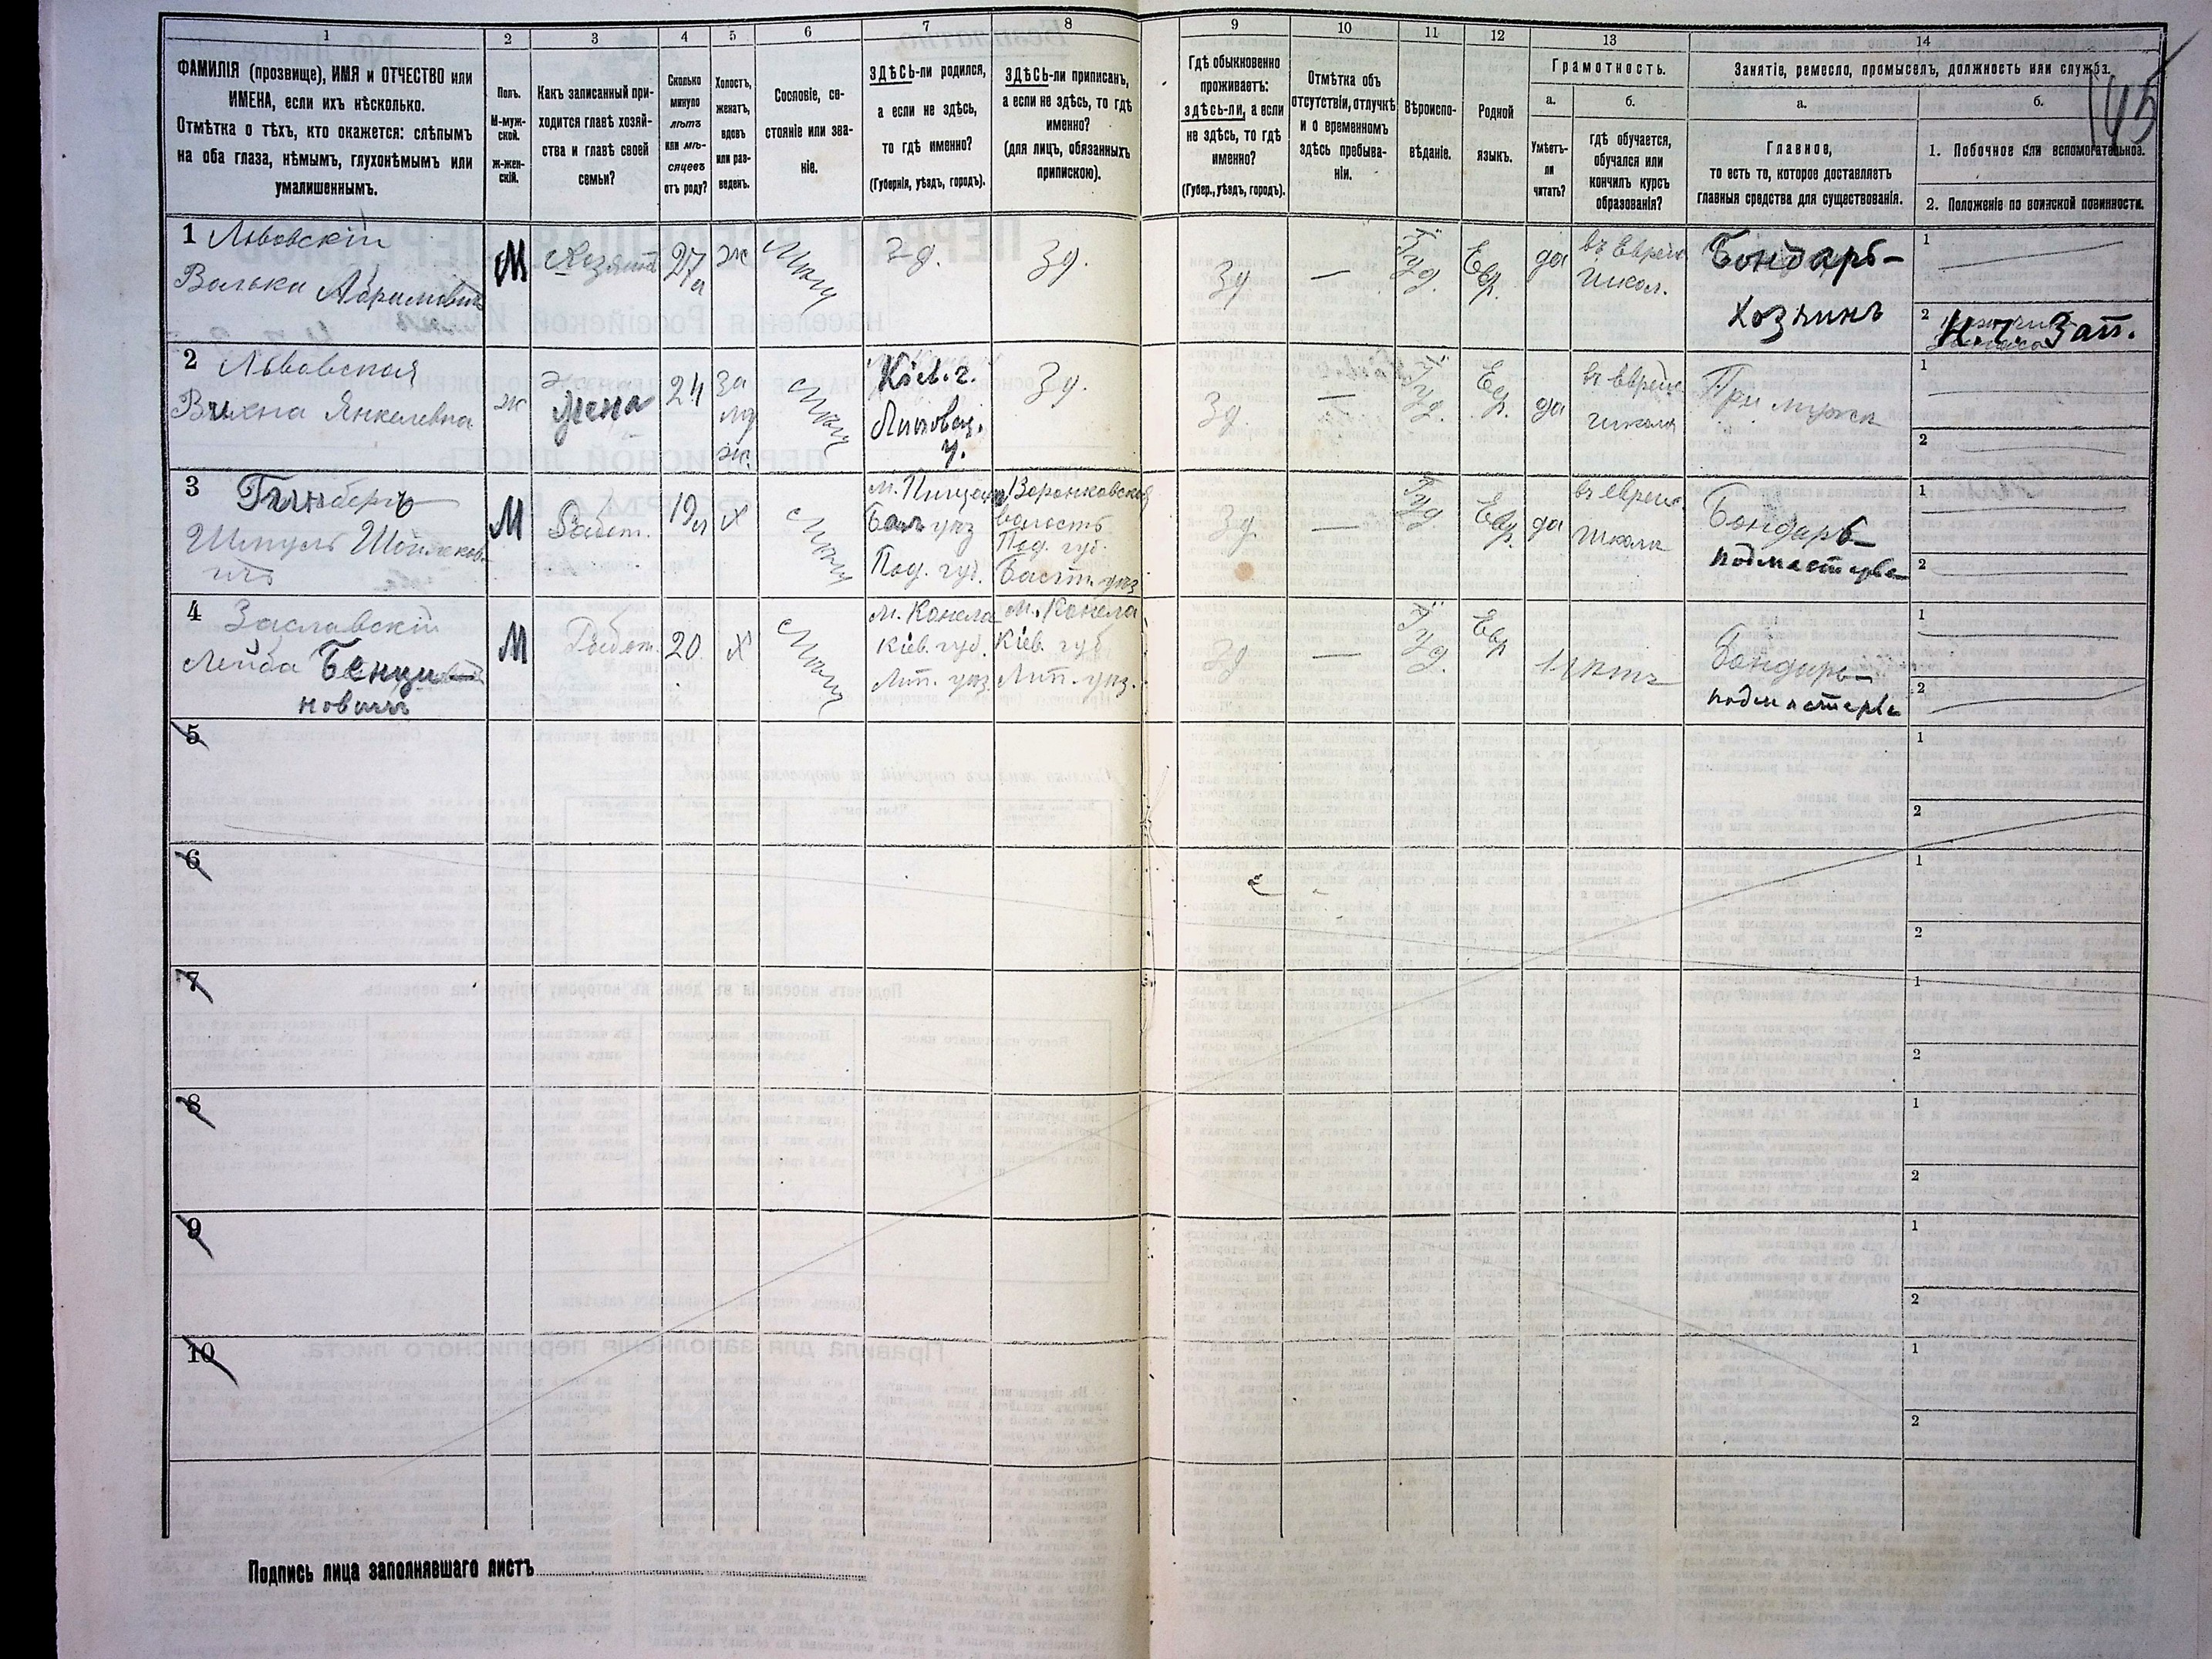 1 2 3 4 5 6 7 8 9 10 11 12 13 14
ФАМИЛІЯ (прозвище), ИМЯ и ОТЧЕСТВО или
ИМЕНА, если ихъ нѣсколько.
Отмѣтка о тѣхъ, кто окажется: слѣпымъ
на оба глаза, нѣмымъ, глухонѣмымъ или
умалишеннымъ.
Полъ.
М-муж-
ской.
ж-жен-
скій.
Какъ записанный при-
ходится главѣ хозяй-
ства и главѣ своей
семьи?
Сколько
минуло
лѣтъ
или мѣ-
сяцевъ
отъ роду?
Холостъ,
женатъ,
вдовъ
или раз-
веденъ.
Сословіе, со-
стояніе или зва-
ніе.
ЗДѢСЬ-ли родился,
а если не здѣсь,
то гдѣ именно?
(Губернія, уѣздъ, городъ).
ЗДѢСЬ-ли приписанъ,
а если не здѣсь, то гдѣ
именно?
(для лицъ, обязанныхъ
припискою).
Гдѣ обыкновенно
проживаетъ:
здѣсь-ли, а если
не здѣсь, то гдѣ
именно?
(Губер., уѣздъ, городъ).
Отмѣтка объ
отсутствіи, отлучкѣ
и о временномъ
здѣсь пребыва-
ніи.
Вѣроиспо-
вѣданіе.
Родной
языкъ.
Грамотность.
а.
Умѣетъ-
ли
читать?
б.
гдѣ обучается,
обучался или
кончилъ курсъ
образованія?
Занятіе, ремесло, промыселъ, должность или служба.
а.
Главное,
то есть то, которое доставляетъ
главныя средства для существованія.
б.
1. Побочное или вспомогательное.
2. Положеніе по воинской повинности.
145
1 Львовскій
Волька Абрамовичъ
М
Хозяинъ
27
ж
Зд.
Зд.
Зд
—
Іуд.
Евр.
да
въ Еврейс.
школ.
Бондарь-
хозяинъ
1
2
Зап.
2 Львовская
Янкелевна
ж
жена
24
за
муж.
Кіев. г.
Липовец.
у.
Зд.
Зд.
—
Іуд.
Евр.
да
въ еврейс.
школа
При мужѣ
1
2
3
Шмуль
М
Работ.
19
Х
Под. губ.
волость
Под. губ.
Зд.
—
Іуд
Евр.
да
въ еврейс.
школа
Бондарь-
подмастерье
1
2
4 Заславскій
Лейба Бенци-
новичъ
М
Работ.
20.
Х
м. Конела
Кіев. губ.
Лип. уѣз.
м. Конела
Кіев. губ
Лип. уѣз.
Зд
—
Іуд.
Евр
нѣтъ
Бондарь-
подмастерье
1
2
5
1
2
6
1
2
7
1
2
8
1
2
9
1
2
10
1
2
Подпись лица заполнявшаго листъ